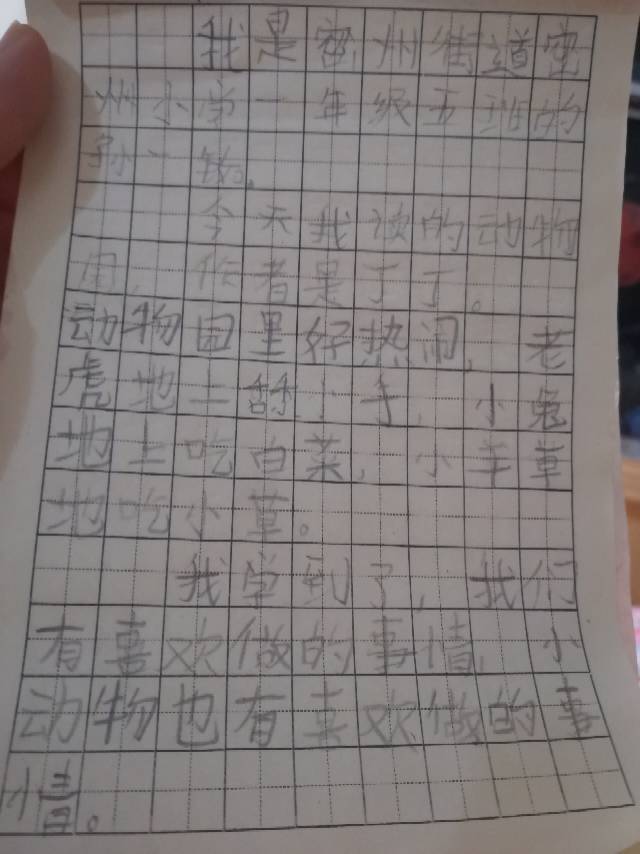 我是密州街道密
州小学一年级五班的
孙一
今天我读的动物
园,作者是丁丁。
动物园里好热闹,老
虎地上舔小手,小兔
地上吃白菜,小羊草
地吃小草。
我学到了,我们
有喜欢做的事情,小
动物也有喜欢做的事
情。